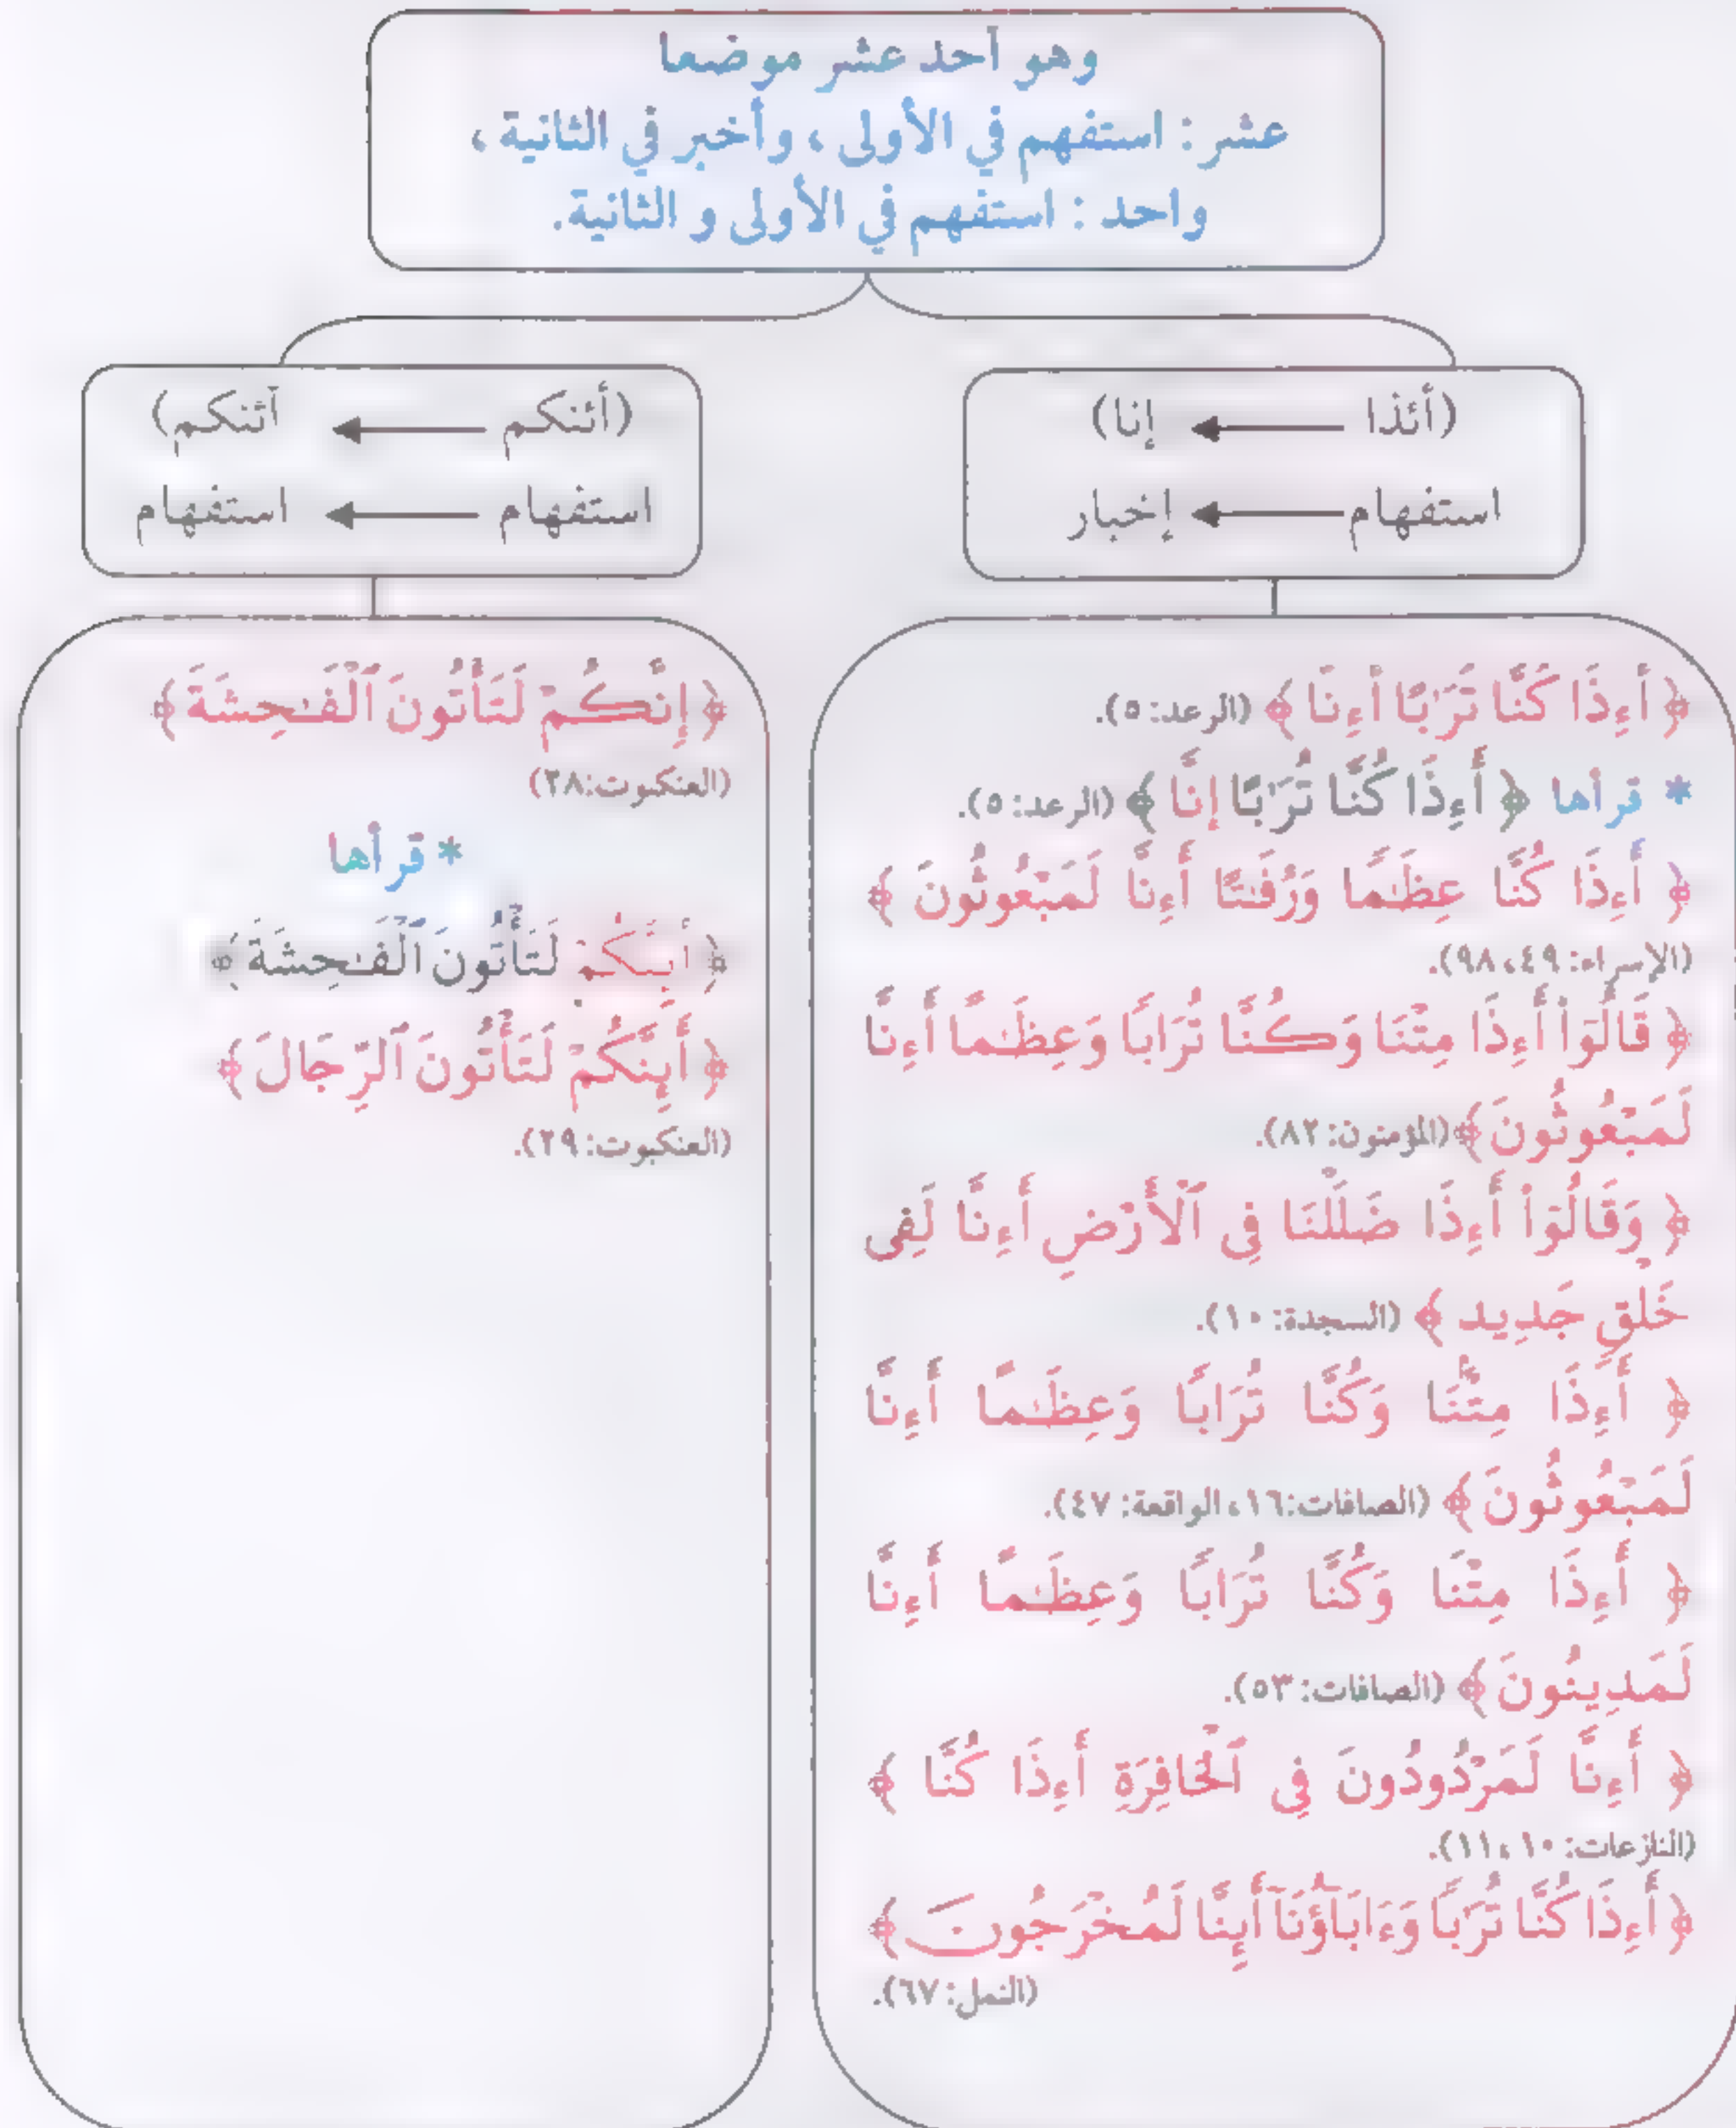 وهو أحد عشر موضعا
عشر : استفهم في الأولى ، وأخبر في الثانية ،
واحد : استفهم في الأولى و الثانية.
(أئذا ← إنا)
استفهام ← إخبار
﴿ أَءِذَا كُنَّا تُرَٰبًا أَءِنَّا ﴾ (الرعد: ٥).
* قرأها ﴿ أَءِذَا كُنَّا تُرَٰبًا إِنَّا ﴾ (الرعد: ٥).
﴿ أَءِذَا كُنَّا عِظَٰمًا وَرُفَٰتًا أَءِنَّا لَمَبْعُوثُونَ ﴾
(الإسراء: ٤٩، ٩٨).
﴿ قَالُوٓا۟ أَءِذَا مِتْنَا وَكُنَّا تُرَابًا وَعِظَٰمًا أَءِنَّا
لَمَبْعُوثُونَ ﴾ (المؤمنون: ٨٢).
﴿ وَقَالُوٓا۟ أَءِذَا ضَلَلْنَا فِى ٱلْأَرْضِ أَءِنَّا لَفِى
خَلْقٍ جَدِيد ﴾ (السجدة: ١٠).
﴿ أَءِذَا مِتْنَا وَكُنَّا تُرَابًا وَعِظَٰمًا أَءِنَّا
لَمَبْعُوثُونَ ﴾ (الصافات: ١٦، الواقعة: ٤٧).
﴿ أَءِذَا مِتْنَا وَكُنَّا تُرَابًا وَعِظَٰمًا أَءِنَّا
لَمَدِينُونَ ﴾ (الصافات: ٥٣).
﴿ أَءِنَّا لَمَرْدُودُونَ فِى ٱلْحَافِرَةِ أَءِذَا كُنَّا ﴾
(النازعات: ١٠، ١١).
﴿ أَءِذَا كُنَّا تُرَٰبًا وَءَابَآؤُنَآ أَئِنَّا لَمُخْرَجُونَ ﴾
(النمل: ٦٧).
(أئنكم ← آئنكم)
استفهام ← استفهام
﴿ إِنَّكُمْ لَتَأْتُونَ ٱلْفَٰحِشَةَ ﴾
(العنكبوت: ٢٨)
* قرأها
﴿ أَئِنَّكُمْ لَتَأْتُونَ ٱلْفَٰحِشَةَ ﴾
﴿ أَئِنَّكُمْ لَتَأْتُونَ ٱلرِّجَالَ ﴾
(العنكبوت: ٢٩).